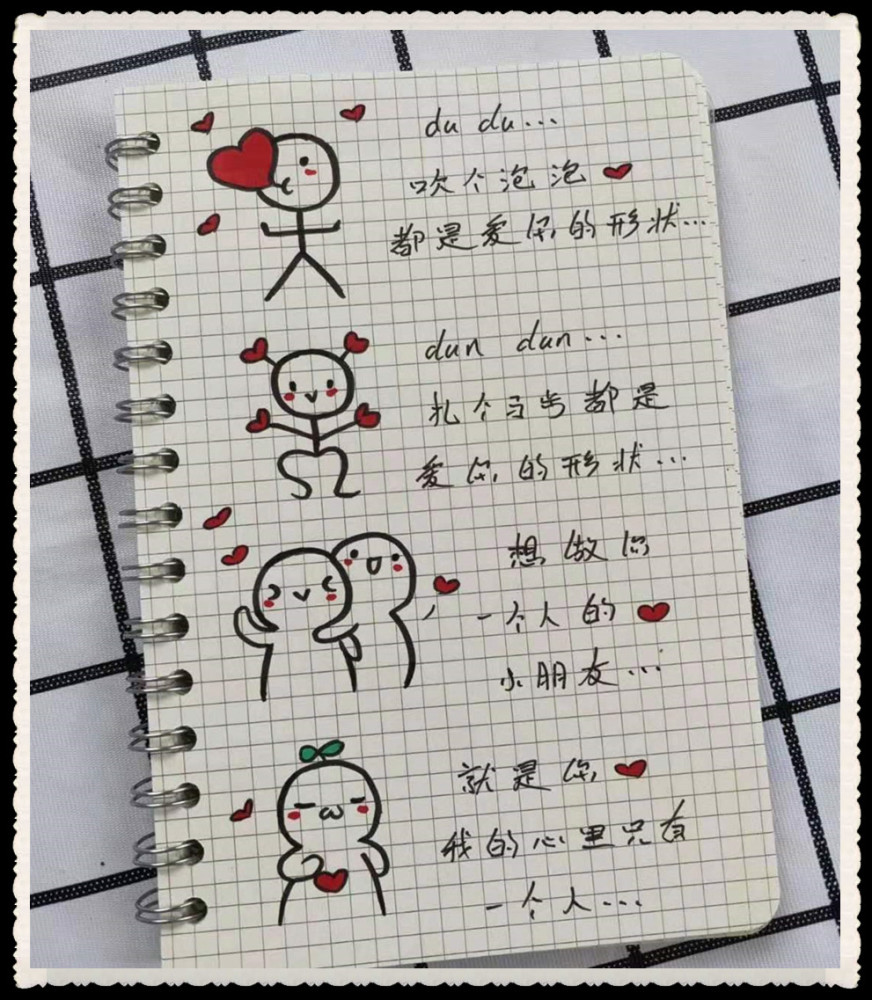 du du...
吹个泡泡
都是爱你的形状...
dun dun...
扎个马步都是
爱你的形状...
想做你
一个人的
小朋友...
就是你
我的心里只有
一个人...